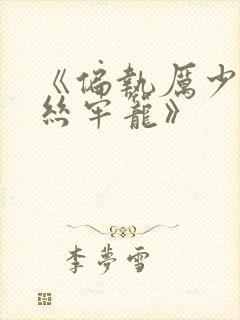 《偏執厲少
絲牢籠》
李夢雪